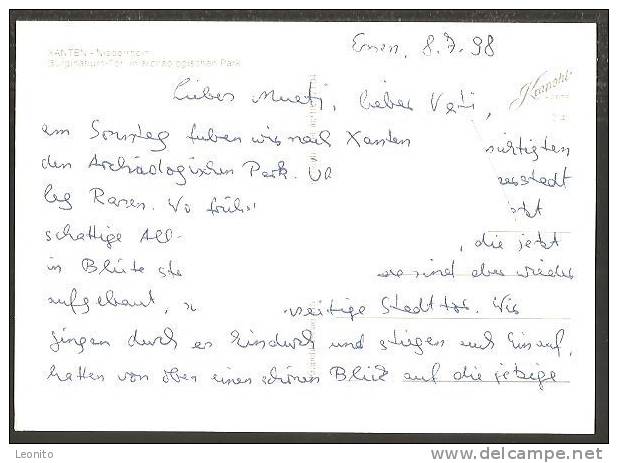 XANTEN - Niederrhein
Burginatium-Tor im Archäologischen Park
Essen, 8.7.98
Kranohl
Liebes Mueti, lieber Vati,
am Sonntag fuhren wir nach Xanten
sichtigten
den Archäologischen Park. Wo
esstadt
lag Rasen. Wo früh
jetzt
schattige All-
, die jetzt
in Blüte ste
sind aber wieder
aufgebaut,
seitige Stadttor. Wir
gingen durch es hindurch und stiegen auch hinauf,
hatten von oben einen schönen Blick auf die jetzige
Leonito
www.delcampe.net